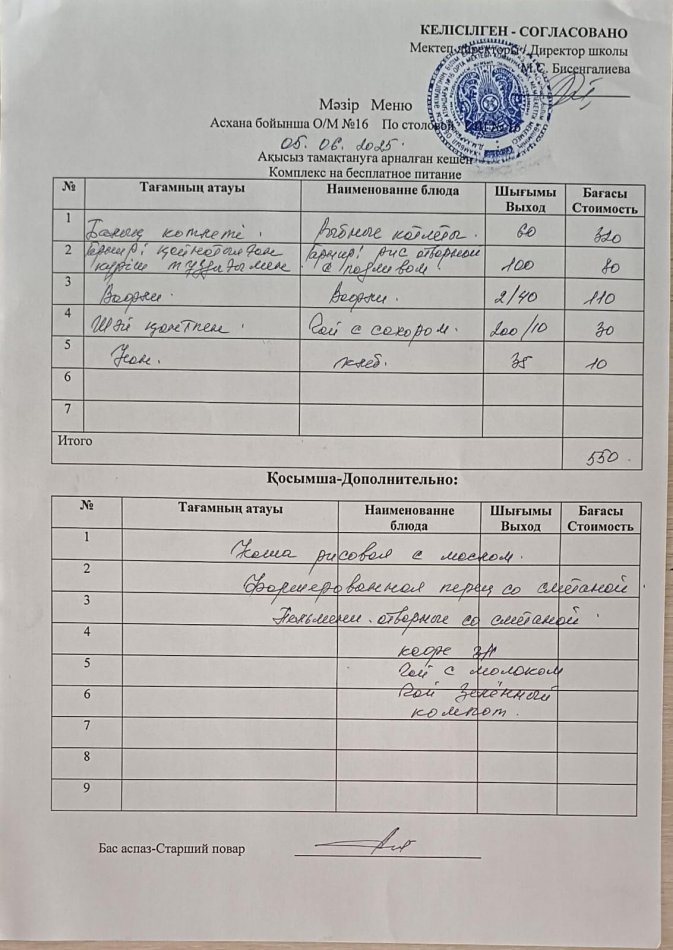 КЕЛІСІЛГЕН - СОГЛАСОВАНО
Мектеп директоры / Директор школы
М.С. Бисенгалиева
Мәзір Меню
Асхана бойынша О/М №16 По столовой
05. 06. 2025.
Ақысыз тамақтануға арналған кешен
Комплекс на бесплатное питание
№ Тағамның атауы Наименование блюда Шығымы Выход Бағасы Стоимость
1 Балық котлеті. Рыбные котлеты. 60 320
2 Гарнир: қайнатылған күріш тұздығымен. Гарнир: рис отварной с подливом. 100 80
3 Вафли. Вафли. 2/40 110
4 Шәй қантпен. Чай с сахаром. 200/10 30
5 Нан. хлеб. 35 10
6
7
Итого 550.
Қосымша-Дополнительно:
№ Тағамның атауы Наименование блюда Шығымы Выход Бағасы Стоимость
1 Каша рисовая с маслом.
2 Фаршированная перец со сметаной.
3 Пельмени отварные со сметаной.
4 кофе 3/1
5 Чай с молоком
6 Чай Зелённый
компот.
7
8
9
Бас аспаз-Старший повар